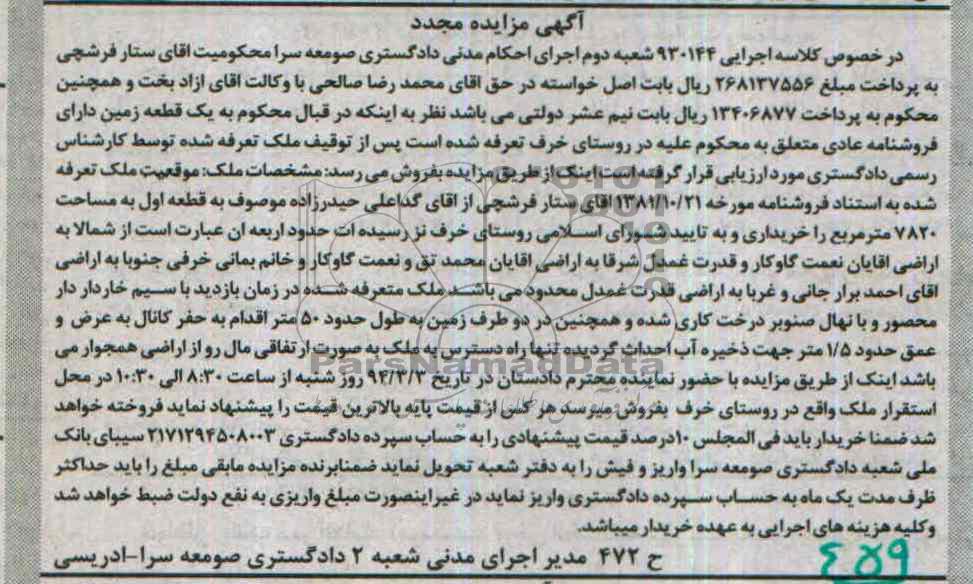 آگهی مزایده مجدد
در خصوص کلاسه اجرایی ۹۳۰۱۴۴ شعبه دوم اجرای احکام مدنی دادگستری صومعه سرا محکومیت اقای ستار فرشچی
به پرداخت مبلغ ۲۶۸۱۳۷۵۵۶ ریال بابت اصل خواسته در حق اقای محمد رضا صالحی با وکالت اقای ازاد بخت و همچنین
محکوم به پرداخت ۱۳۴۰۶۸۷۷ ریال بابت نیم عشر دولتی می باشد نظر به اینکه در قبال محکوم به یک قطعه زمین دارای
فروشنامه عادی متعلق به محکوم علیه در روستای خرف تعرفه شده است پس از توقیف ملک تعرفه شده توسط کارشناس
رسمی دادگستری مورد ارزیابی قرار گرفته است اینک از طریق مزایده بفروش می رسد: مشخصات ملک: موقعیت ملک تعرفه
شده به استناد فروشنامه مورخه ۱۳۸۹/۱۰/۲۱ اقای ستار فرشچی از اقای گداعلی حیدرزاده موصوف به قطعه اول به مساحت
۷۸۲۰ مترمربع را خریداری و به تایید شورای اسلامی روستای خرف نز رسیده ات حدود اربعه ان عبارت است از شمالا به
اراضی اقایان نعمت گاوکار و قدرت غمدل شرقا به اراضی اقایان محمد تق و نعمت گاوکار و خانم بمانی خرفی جنوبا به اراضی
اقای احمد برار جانی و غربا به اراضی قدرت غمدل محدود می باشد ملک متعرفه شده در زمان بازدید با سیم خاردار دار
محصور و با نهال صنوبر درخت کاری شده و همچنین در دو طرف زمین به طول حدود ۵۰ متر اقدام به حفر کانال به عرض و
عمق حدود ۱/۵ متر جهت ذخیره آب احداث گردیده تنها راه دسترس به ملک به صورت ارتفاقی مال رو از اراضی همجوار می
باشد اینک از طریق مزایده با حضور نماینده محترم دادستان در تاریخ ۹۴/۳/۳ روز شنبه از ساعت ۸:۳۰ الی ۱۰:۳۰ در محل
استقرار ملک واقع در روستای خرف بفروش میرسد هر کس از قیمت پایه بالاترین قیمت را پیشنهاد نماید فروخته خواهد
شد ضمنا خریدار باید فی المجلس ۱۰درصد قیمت پیشنهادی را به حساب سپرده دادگستری ۲۱۷۱۲۹۴۵۰۸۰۰۳ سیبای بانک
ملی شعبه دادگستری صومعه سرا واریز و فیش را به دفتر شعبه تحویل نماید ضمنابرنده مزایده مابقی مبلغ را باید حداکثر
ظرف مدت یک ماه به حساب سپرده دادگستری واریز نماید در غیر اینصورت مبلغ واریزی به نفع دولت ضبط خواهد شد
وکلیه هزینه های اجرایی به عهده خریدار میباشد.
ح ۴۷۲ مدیر اجرای مدنی شعبه ۲ دادگستری صومعه سرا-ادریسی
۴۵۹
ParsNamadData